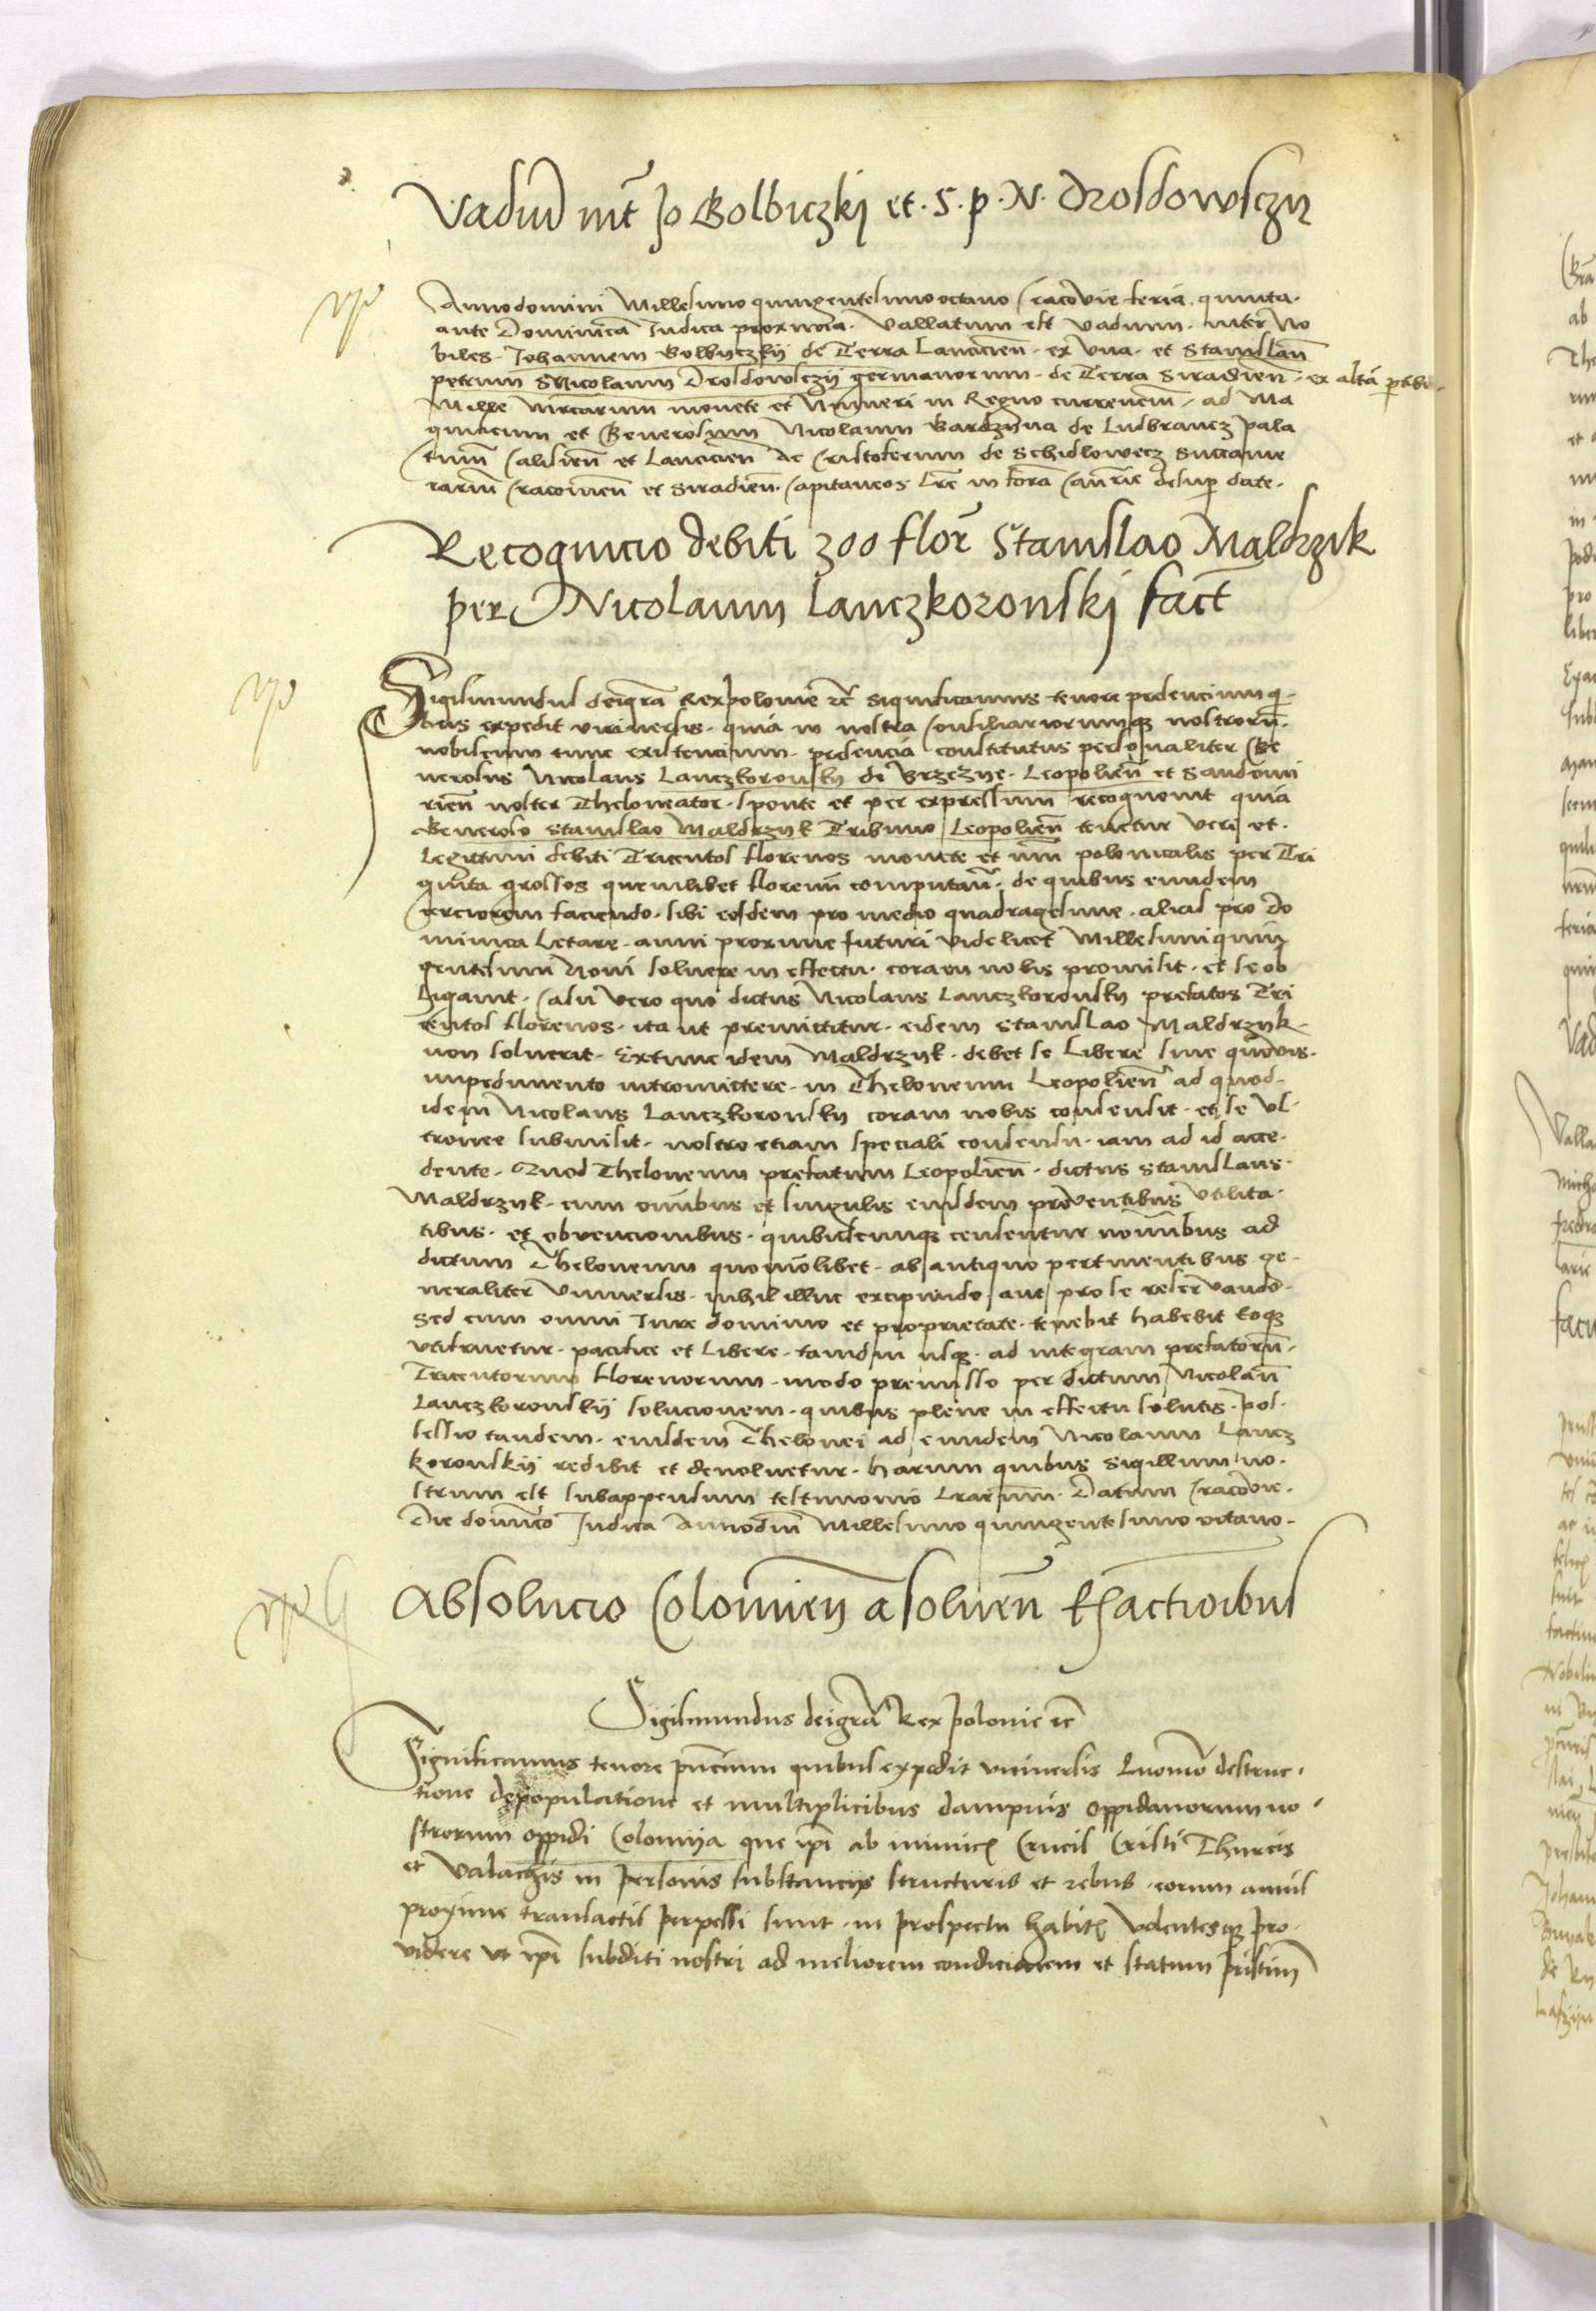 Vadiũ int̃ Jo Golbiczkj et. S. p. N. Drosdowsczy
Anno domini Millesimo quingentesimo octavo Cracovie feria quinta.
ante Dominicã Judica proxima. Vallatum est vadium. inter No
biles. Johannem Golbyczkÿ de Terra Lancicieñ. ex vna. et Stanislaũ
petrum Nicolaum Drosdowsczÿ germanorum. de Terra Siradieñ. ex altã p̱tibꝫ.
Mille mrcarum monete et Numeri in Regno curreñ. ad Ma
gnificum et Generosum Nicolaum Gardzyna de Ludbrancz pala
tinũ Calisieñ et Lancicieñ Ac Cristoferum de Schidlowecz Succame
rariũ Cracovieñ et Siradieñ. Capitaneos. Lrẽ in forã Canc̃rie desuꝑ date.
Recognicio debiti 300 flor̃ Stanislao Maldrzik
per Nicolaum Lanczkoronskj fact̃
Sigismundus dei gr̃a Rex polonie ꝛc̃ Significamus tenore presencium qͥ
bus expedit vniversis. quia in nostra Consiliariorumqꝫ nostrorũ.
nobiscum tunc existencium. presencia constitutus personaliter Ge
nerosus Nicolaus Lanczkoronsky de Brzezye. Leopolieñ et Sandomi
rieñ noster Theloneator. sponte et per expressum recognovit quia
Generoso Stanislao Maldrzyk Tribuno Leopolieñ tenetur veri et.
Legittimi debiti Tricentos florenos monete et nũi polonicalis per Tri
ginta grossos quemlibet florenũ computañ. de quibus eundem
cerciorem faciendo. sibi eosdem pro medio quadragesime. alias pro Do
minica Letare. anni proxime futuri videlicet Millesimi quin
gentesimi Noni solvere in effectu. coram nobis promisit. et se ob
ligavit. Casu vero quo dictus Nicolaus Lanczkoronsky prefatos Tri
centos florenos. ita ut premittitur. eidem Stanislao Maldrzyk.
non solverit. Extunc idem Maldrzyk. debet se Libere sine quovis.
impedimento intromittere. in Theloneum Leopolieñ ad quod.
idem Nicolaus Lanczkoronsky coram nobis consensit. et se vl
tronee submisit. nostro etiam speciali consensu. iam ad id acce
dente. Quod Theloneum prefatum Leopolieñ. dictus Stanislaus.
Maldrzyk. cum oñibus et singulis eiusdem proventibus vtilita
tibus. et obvencionibus. quibuscumqꝫ censentur noĩnibus ad
dictum Theloneum quomõlibet. ab antiquo pertinentibus ge
neraliter vniversis. nihil illinc excipiendo aut pro se reservando.
Sed cum omni Jure dominio et proprietate. tenebit habebit Eoqꝫ
vtifruetur. pacifice et Libere. tamdiu usqꝫ. ad integram prefatorũ.
Tricentorum florenorum. modo premisso per dictum Nicolaũ
Lanczkoronskÿ solucionem. quibus plene in effectu solutis. pos
sessio tandem. eiusdem Thelonei ad eundem Nicolaum Lancz
koronskÿ redibit et devolvetur. harum quibus Sigillum no
strum est subappensum testimonio Lrarum. Datum Cracovie.
Die dominico Judica Anno dñi Millesimo quingentesimo octavo.
Absolucio Colomien̄ a solueñ Exactioibus
Sigismundus dei gr̃a Rex polonie ꝛc̃
Significamus tenore pñcium quibus expedit vniversis Quomõ destruc
tione depopulatione et multiplicibus dampnis oppidanorum no
strorum oppidi Colomiia que ip̃i ab inimicis Crucis Cristi Thurcis
et Valachis in personis substancÿs structuris et rebus eorum annis
proxime transactis perpessi sunt. in prospectu habitis volentesqꝫ pro
videre vt ip̃i subditi nostri ad meliorem condicionem et statum pristinũ